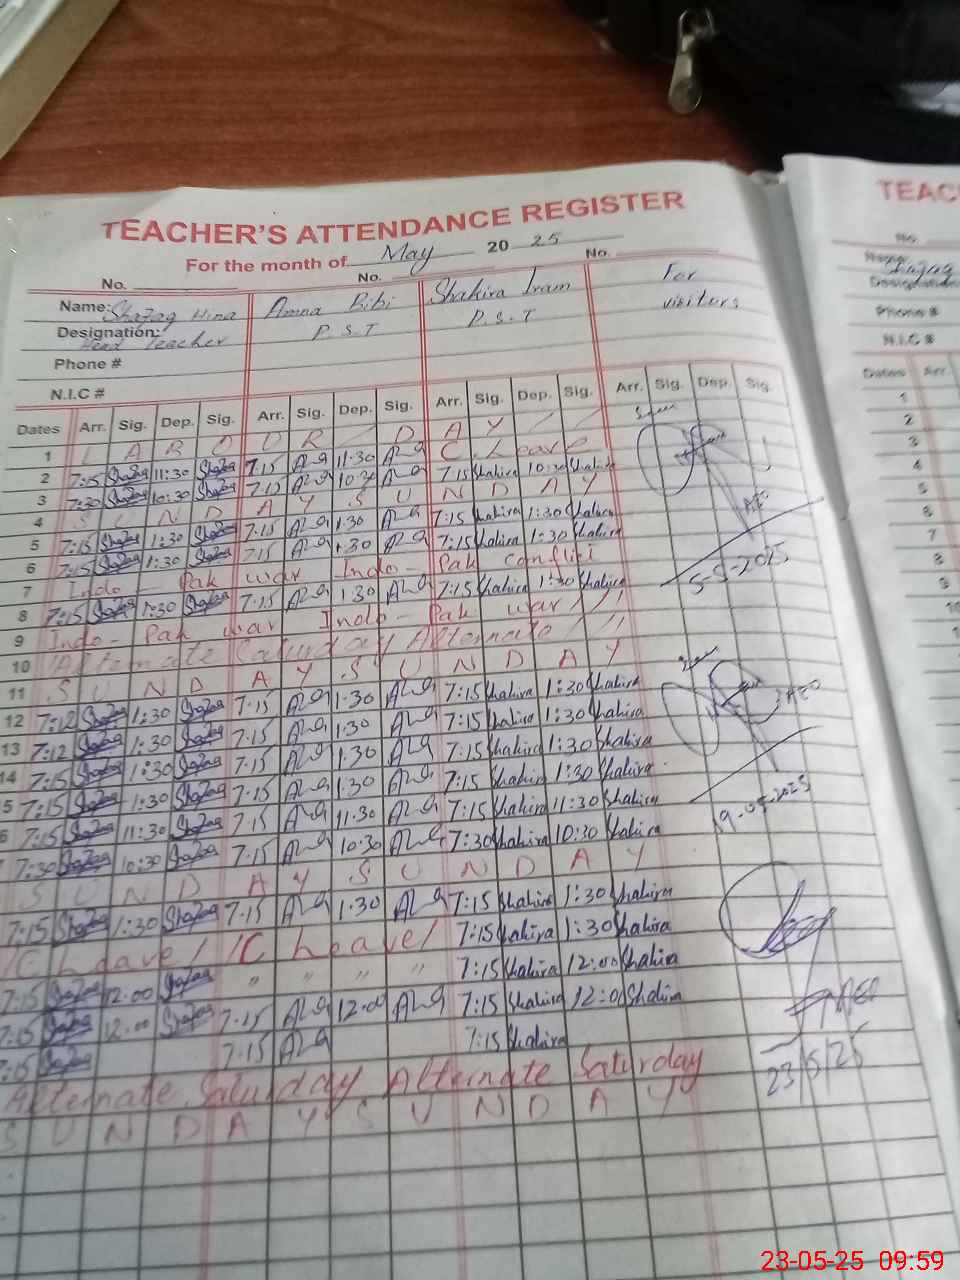 TEACHER'S ATTENDANCE REGISTER
For the month of May 20 25
No. No. No.
Name: Shazag Hina Amna Bibi Shakira Iram For
Designation: Head Teacher P.S.T P.S.T visitors
Phone #
N.I.C #
Dates Arr. Sig. Dep. Sig. Arr. Sig. Dep. Sig. Arr. Sig. Dep. Sig. Arr. Sig. Dep. Sig.
1 L A B O U R / D A Y / /
2 7:15 Shazag 11:30 Shazag 7.15 11.30 C. Leave
3 7:30 Shazag 10:30 Shazag 7.15 10.30 7:15 Shakira 10:30 Shakira
4 S U N D A Y S U N D A Y
5 7:15 Shazag 1:30 Shazag 7.15 1.30 7:15 Shakira 1:30 Shakira
6 7:15 Shazag 1:30 Shazag 7.15 1.30 7:15 Shakira 1:30 Shakira
7 Indo - Pak war Indo - Pak conflict
8 7:15 Shazag 1:30 Shazag 7.15 1.30 7:15 Shakira 1:30 Shakira
9 Indo - Pak war Indo - Pak war / / /
10 Alternate Saturday Alternate / / /
11 S U N D A Y S U N D A Y
12 7:12 Shazag 1:30 Shazag 7.15 1.30 7:15 Shakira 1:30 Shakira
13 7:12 Shazag 1:30 Shazag 7.15 1.30 7:15 Shakira 1:30 Shakira
14 7:15 Shazag 1:30 Shazag 7.15 1.30 7:15 Shakira 1:30 Shakira
5 7:15 Shazag 1:30 Shazag 7.15 1.30 7:15 Shakira 1:30 Shakira
6 7:15 Shazag 11:30 Shazag 7.15 11.30 7:15 Shakira 11:30 Shakira
7:30 Shazag 10:30 Shazag 7.15 10.30 7:30 Shakira 10:30 Shakira
S U N D A Y S U N D A Y
7:15 Shazag 1:30 Shazag 7.15 1.30 7:15 Shakira 1:30 Shakira
/ C Leave / / C Leave / 7:15 Shakira 1:30 Shakira
7:15 Shazag 12:00 Shazag " " " " 7:15 Shakira 12:00 Shakira
7:15 Shazag 12:00 Shazag 7.15 12.00 7:15 Shakira 12:0 Shakira
7:15 Shazag 7.15 7:15 Shakira
Alternate Saturday Alternate Saturday
S U N D A Y S U N D A Y
AEO
5-5-2025
AEO
19-05-2025
AEO
23/5/25
TEAC
No.
Name: Shazag
Designation:
Phone #
N.I.C #
Dates Arr.
1
2
3
4
5
6
7
8
9
10
23-05-25 09:59